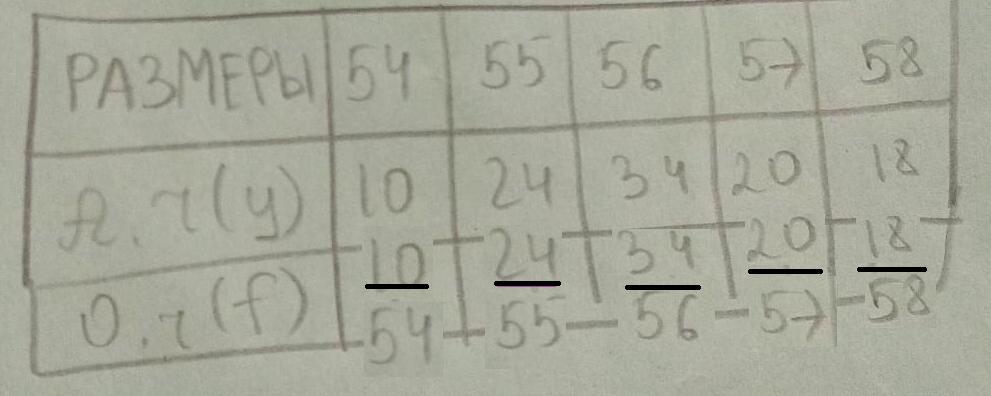 РАЗМЕРЫ 54 55 56 57 58
А. ч(у) 10 24 34 20 18
О. ч(f) 10/54 24/55 34/56 20/57 18/58